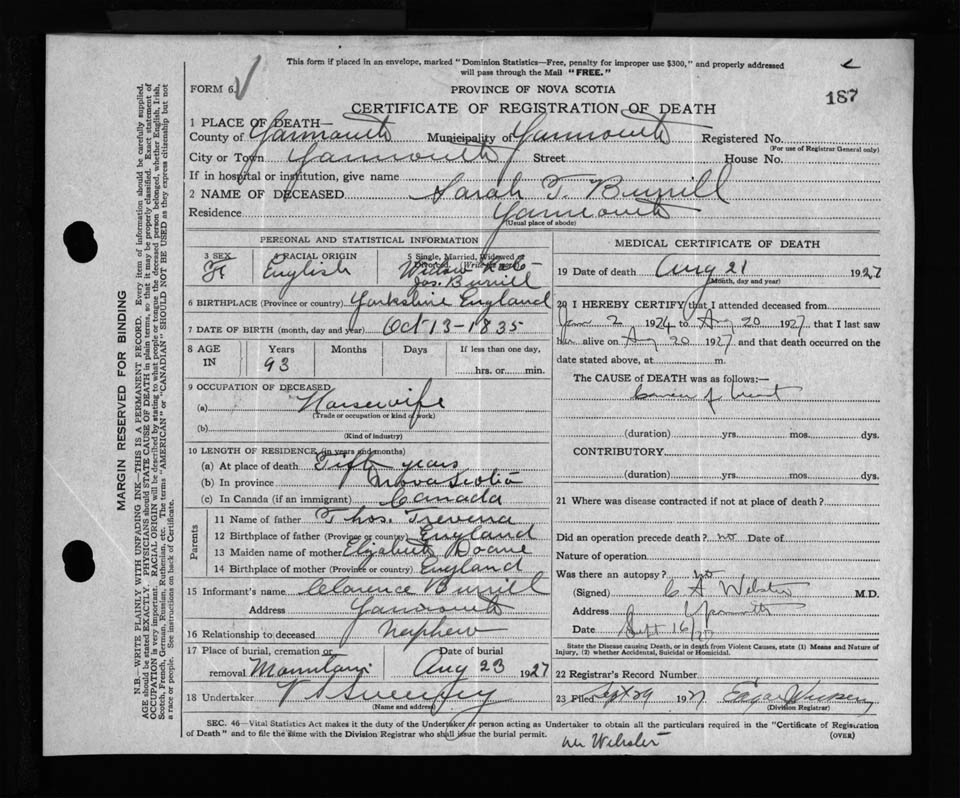 This form if placed in an envelope, marked "Dominion Statistics—Free, penalty for improper use $300," and properly addressed
will pass through the Mail "FREE."
FORM 6.
PROVINCE OF NOVA SCOTIA
187
CERTIFICATE OF REGISTRATION OF DEATH
1 PLACE OF DEATH—
County of Yarmouth Municipality of Yarmouth Registered No.
(For use of Registrar General only)
City or Town Yarmouth Street House No.
If in hospital or institution, give name
2 NAME OF DECEASED Sarah T. Burrill
Residence Yarmouth
(Usual place of abode)
PERSONAL AND STATISTICAL INFORMATION
3 SEX F
4 RACIAL ORIGIN English
5 Single, Married, Widowed or Divorced (Write the word)
Widow
Jos. Burrill
6 BIRTHPLACE (Province or country) Yorkshire England
7 DATE OF BIRTH (month, day and year) Oct 13-1835
8 AGE IN Years Months Days If less than one day,
93 hrs. or min.
9 OCCUPATION OF DECEASED
(a) Housewife
(Trade or occupation or kind of work)
(b)
(Kind of industry)
10 LENGTH OF RESIDENCE (in years and months)
(a) At place of death Fifty years
(b) In province Nova Scotia
(c) In Canada (if an immigrant) Canada
Parents
11 Name of father Thos. Trevena
12 Birthplace of father (Province or country) England
13 Maiden name of mother Elizabeth Doane
14 Birthplace of mother (Province or country) England
15 Informant's name Clarence Burrill
Address Yarmouth
16 Relationship to deceased nephew
17 Place of burial, cremation or removal Date of burial
Aug 23 1927
18 Undertaker V A Sweeney
(Name and address)
MEDICAL CERTIFICATE OF DEATH
19 Date of death Aug 21 1927
(Month, day and year)
20 I HEREBY CERTIFY that I attended deceased from
Jan 2 1924 to Aug 20 1927, that I last saw
her alive on Aug 20 1927 and that death occurred on the
date stated above, at m.
The CAUSE of DEATH was as follows:—
(duration) yrs. mos. dys.
CONTRIBUTORY
(duration) yrs. mos. dys.
21 Where was disease contracted if not at place of death?
Did an operation precede death? no Date of
Nature of operation
Was there an autopsy? no
(Signed) C A Webster M.D.
Address Yarmouth
Date Sept 16/27
State the Disease causing Death, or in death from Violent Causes, state (1) Means and Nature of
Injury, (2) whether Accidental, Suicidal or Homicidal.
22 Registrar's Record Number
23 Filed Sept 29 1927
(Division Registrar)
SEC. 46—Vital Statistics Act makes it the duty of the Undertaker or person acting as Undertaker to obtain all the particulars required in the "Certificate of Registration
of Death" and to file the same with the Division Registrar who shall issue the burial permit.
(OVER)
Webster
MARGIN RESERVED FOR BINDING
N.B.—WRITE PLAINLY WITH UNFADING INK—THIS IS A PERMANENT RECORD. Every item of information should be carefully supplied.
AGE should be stated EXACTLY. PHYSICIANS should STATE CAUSE OF DEATH in plain terms, so that it may be properly classified. Exact statement of
OCCUPATION is very important. RACIAL ORIGIN will be described by stating to what people or tongue the deceased person belonged, whether English, Irish,
Scotch, French, German, Russian, Ruthenian, etc. The terms "AMERICAN" or "CANADIAN" SHOULD NOT BE USED as they express citizenship but not
a race or people. See instructions on back of Certificate.